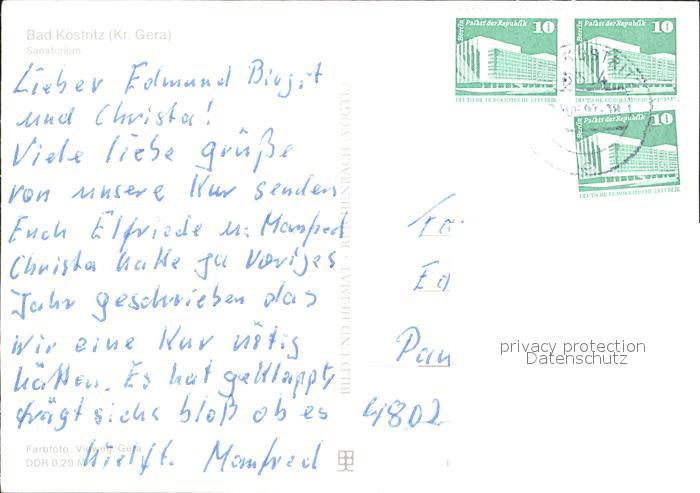 Bad Köstritz (Kr. Gera)
Sanatorium
Lieber Edmund Birgit
und Christa!
Viele liebe grüße
von unsere Kur senden
Euch Elfriede u. Manfred
Christa hatte ja Voriges
Jahr geschrieben das
wir eine Kur nötig
hätten. Es hat geklappt,
frägt sichs bloß ob es
hielft. Manfred
Farbfoto: Gera
DDR 0,20 M
BILD UND HEIMAT · REICHENBACH (VOGTL)
Berlin Palast der Republik 10
DEUTSCHE DEMOKRATISCHE REPUBLIK
Berlin Palast der Republik 10
DEUTSCHE DEMOKRATISCHE REPUBLIK
Berlin Palast der Republik 10
DEUTSCHE DEMOKRATISCHE REPUBLIK
Fa
Ed
Pau
4802
privacy protection
Datenschutz